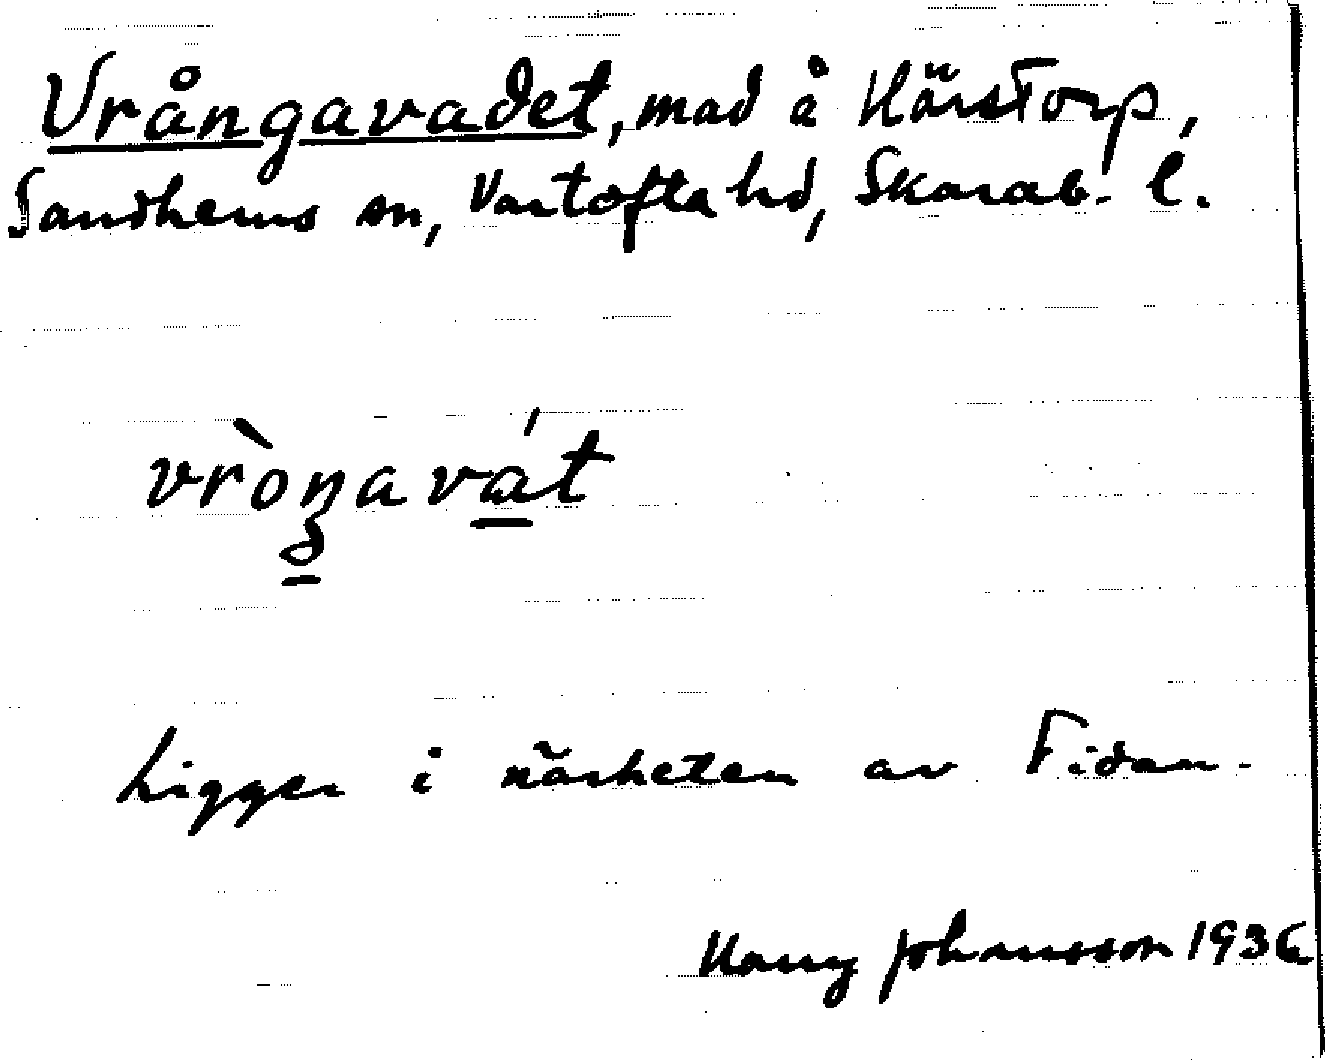 Vrångavadet, mad å Härstorp,
Sandhems sn, Vartofta hd, Skarab. l.
vròŋavát
Ligger i närheten av Tidan.
Harry Johansson 1936